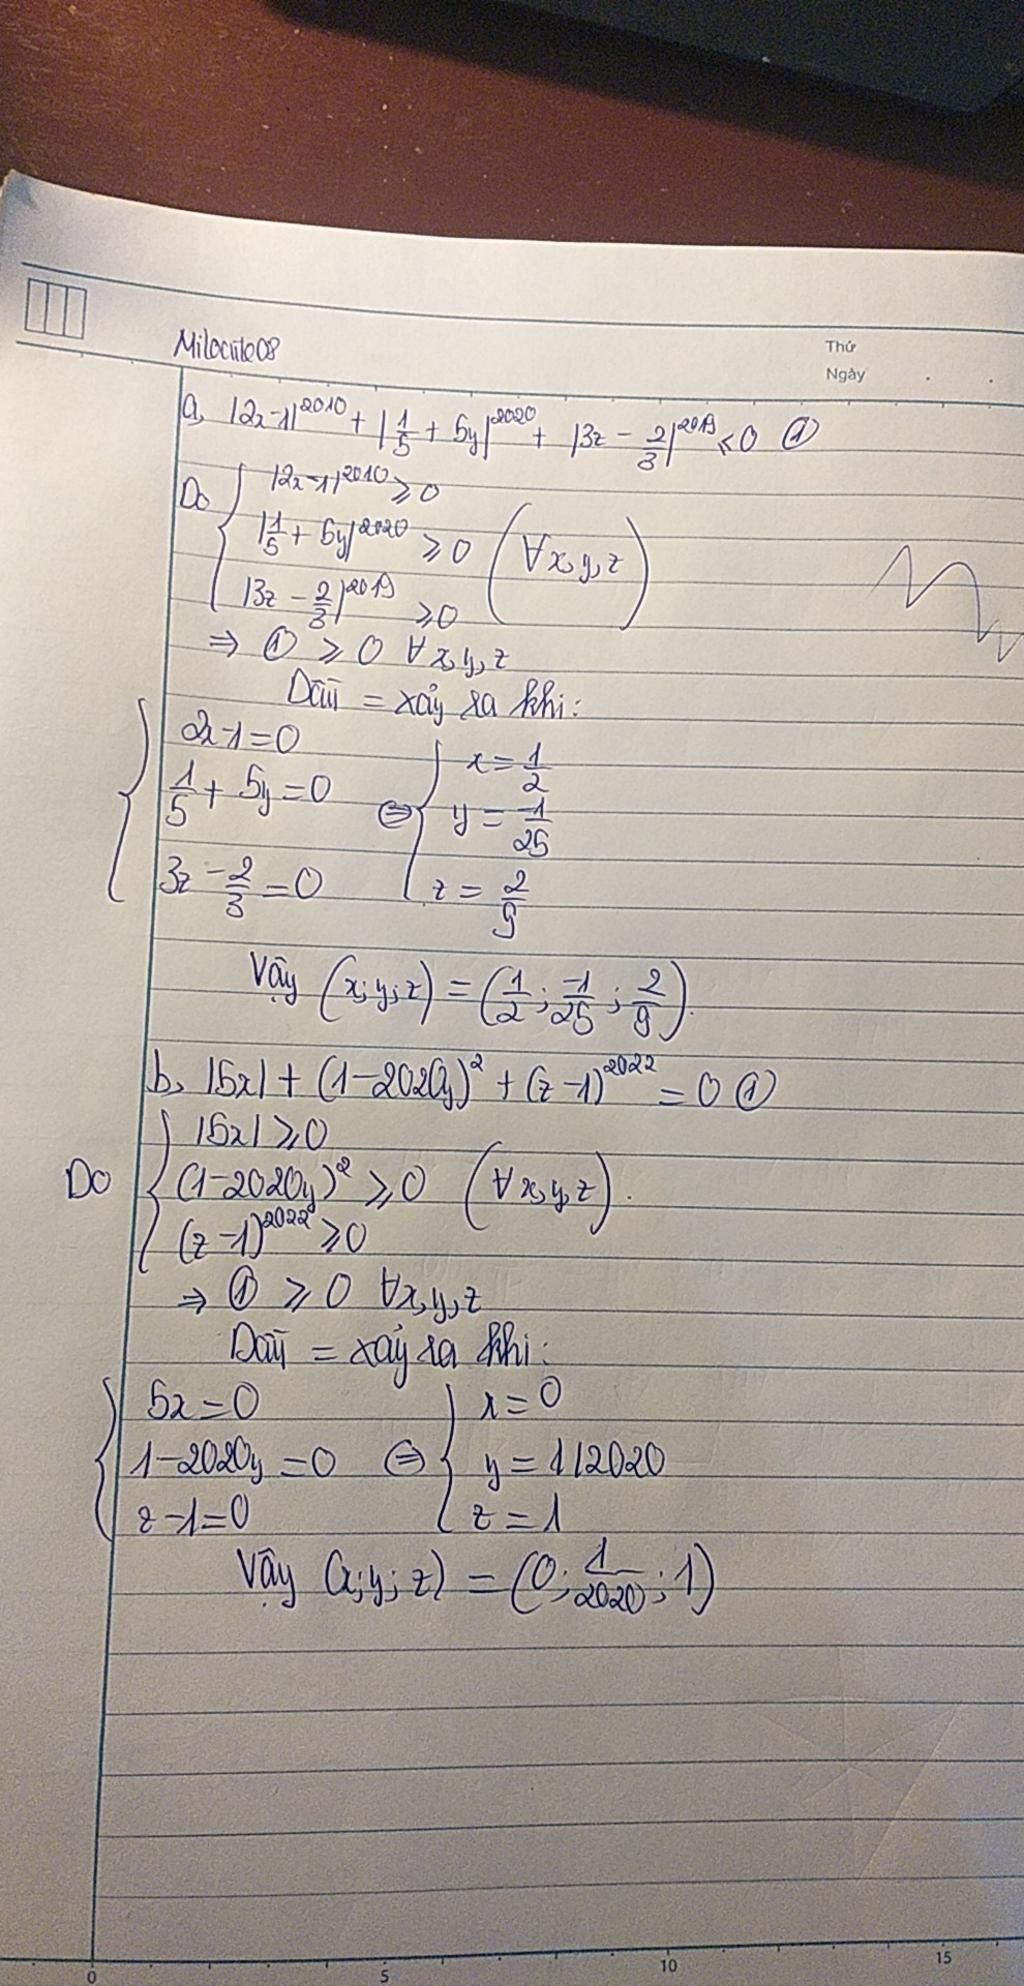 Milocute08
Thứ
Ngày
a, |2x-1|^2010 + |1/5 + 5y|^2020 + |3z - 2/3|^2019 ≤ 0 ①
Do { |2x-1|^2010 ≥ 0
|1/5 + 5y|^2020 ≥ 0 (∀x,y,z)
|3z - 2/3|^2019 ≥ 0
⇒ ① ≥ 0 ∀x,y,z
Dấu = xảy ra khi:
{ 2x-1=0
1/5 + 5y = 0
3z - 2/3 = 0
⇔ { x = 1/2
y = -1/25
z = 2/9
Vậy (x;y;z) = (1/2; -1/25; 2/9).
b, |5x| + (1-2020y)^2 + (z-1)^2022 = 0 ①
Do { |5x| ≥ 0
(1-2020y)^2 ≥ 0 (∀x,y,z).
(z-1)^2022 ≥ 0
⇒ ① ≥ 0 ∀x,y,z
Dấu = xảy ra khi:
{ 5x=0 ⇔ { x=0
1-2020y=0 y=1/2020
z-1=0 z=1
Vậy (x;y;z) = (0; 1/2020; 1)
0 5 10 15